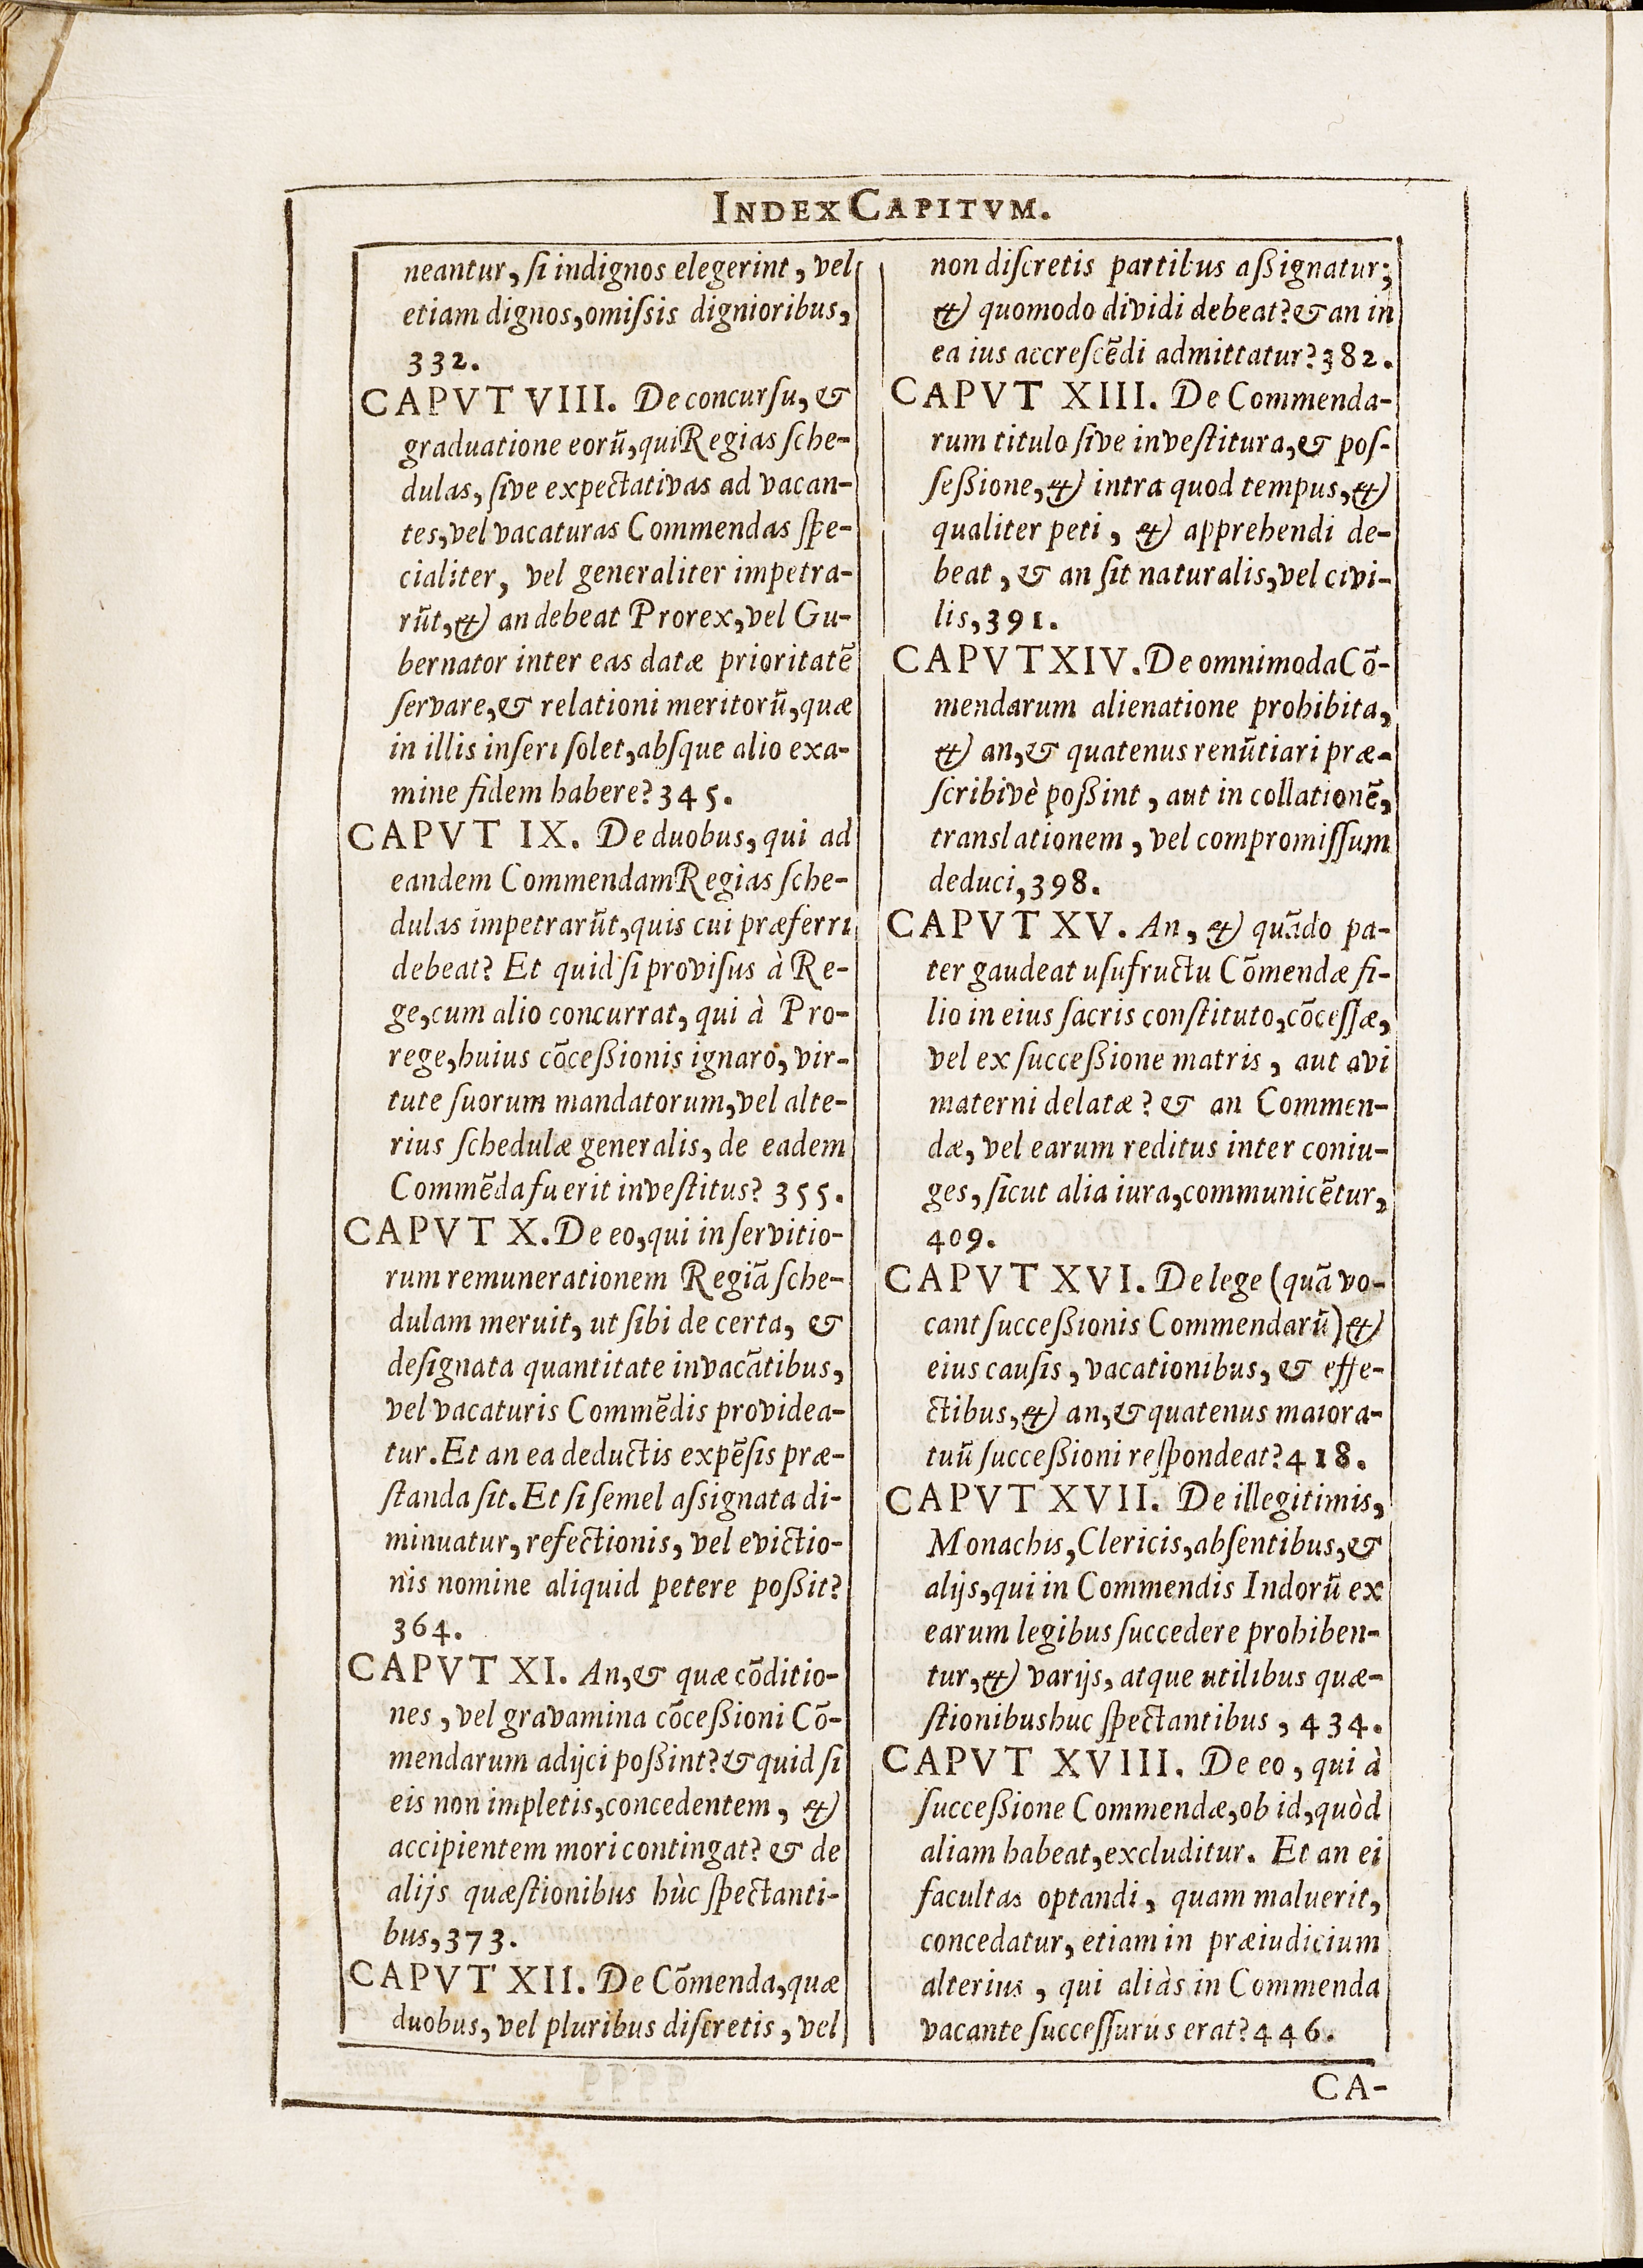 INDEX CAPITVM.
neantur, ſi indignos elegerint, vel
etiam dignos, omiſsis dignioribus,
332.
CAPVT VIII. De concurſu, &
graduatione eorū, qui Regias ſche-
dulas, ſive expectativas ad vacan-
tes, vel vacaturas Commendas ſpe-
cialiter, vel generaliter impetra-
rūt, & an debeat Prorex, vel Gu-
bernator inter eas datæ prioritatē
ſervare, & relationi meritorū, quæ
in illis inſeri ſolet, abſque alio exa-
mine fidem habere? 345.
CAPVT IX. De duobus, qui ad
eandem Commendam Regias ſche-
dulas impetrarūt, quis cui præferri
debeat? Et quid ſi proviſus à Re-
ge, cum alio concurrat, qui à Pro-
rege, huius cōceßionis ignaro, vir-
tute ſuorum mandatorum, vel alte-
rius ſchedulæ generalis, de eadem
Commēda fuerit inveſtitus? 355.
CAPVT X. De eo, qui in ſervitio-
rum remunerationem Regiā ſche-
dulam meruit, ut ſibi de certa, &
deſignata quantitate in vacātibus,
vel vacaturis Commēdis providea-
tur. Et an ea deductis expēſis præ-
ſtanda ſit. Et ſi ſemel aſsignata di-
minuatur, refectionis, vel evictio-
nis nomine aliquid petere poßit?
364.
CAPVT XI. An, & quæ cōditio-
nes, vel gravamina cōceßioni Cō-
mendarum adijci poßint? & quid ſi
eis non impletis, concedentem, &
accipientem mori contingat? & de
alijs quæſtionibus hùc ſpectanti-
bus, 373.
CAPVT XII. De Cōmenda, quæ
duobus, vel pluribus diſcretis, vel
non diſcretis partibus aßignatur;
& quomodo dividi debeat? & an in
ea ius accreſcēdi admittatur? 382.
CAPVT XIII. De Commenda-
rum titulo ſive inveſtitura, & poſ-
ſeßione, & intra quod tempus, &
qualiter peti, & apprehendi de-
beat, & an ſit naturalis, vel civi-
lis, 391.
CAPVT XIV. De omnimoda Cō-
mendarum alienatione prohibita,
& an, & quatenus renūtiari præ-
ſcribivè poßint, aut in collationē,
translationem, vel compromiſſum
deduci, 398.
CAPVT XV. An, & quādo pa-
ter gaudeat uſufructu Cōmendæ fi-
lio in eius ſacris conſtituto, cōceſſæ,
vel ex ſucceßione matris, aut avi
materni delatæ? & an Commen-
dæ, vel earum reditus inter coniu-
ges, ſicut alia iura, communicētur,
409.
CAPVT XVI. De lege (quā vo-
cant ſucceßionis Commendarū) &
eius cauſis, vacationibus, & effe-
ctibus, & an, & quatenus maiora-
tuū ſucceßioni reſpondeat? 418.
CAPVT XVII. De illegitimis,
Monachis, Clericis, abſentibus, &
alijs, qui in Commendis Indorū ex
earum legibus ſuccedere prohiben-
tur, & varijs, atque utilibus quæ-
ſtionibus huc ſpectantibus, 434.
CAPVT XVIII. De eo, qui à
ſucceßione Commendæ, ob id, quòd
aliam habeat, excluditur. Et an ei
facultas optandi, quam maluerit,
concedatur, etiam in præiudicium
alterius, qui aliàs in Commenda
vacante ſucceſſurus erat? 446.
CA-